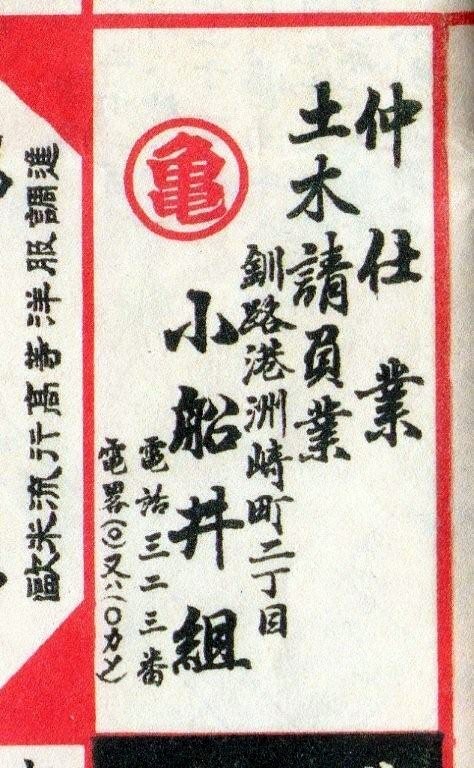 仲仕業
土木請負業
釧路港洲崎町二丁目
亀
小船井組
電話三二三番
電畧(〇)又ハ(〇カメ)
歐米流行高等洋服調進